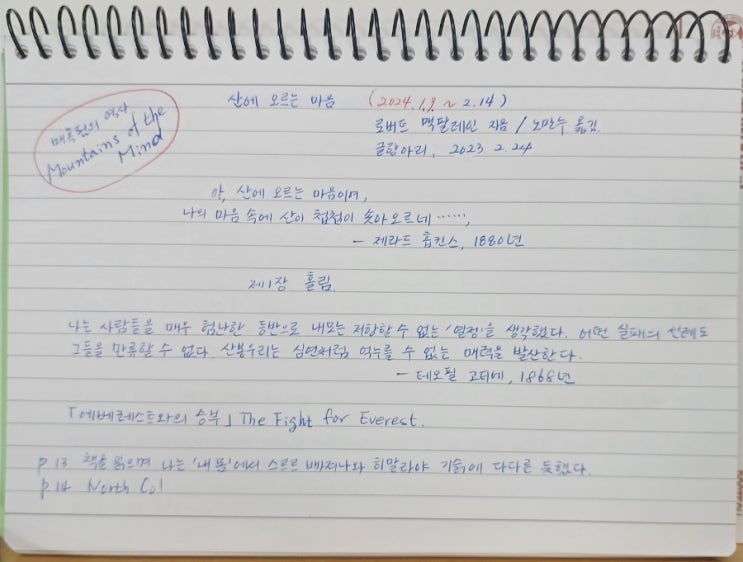 산에 오르는 마음 (2024.1.3 ~ 2.14)
매혹됨의 역사
Mountains of the
Mind
로버트 맥팔레인 지음 / 노만수 옮김
글항아리, 2023. 2. 24
아, 산에 오르는 마음이여,
나의 마음 속에 산이 첩첩이 솟아오르네 ……,
- 제라드 홉킨스, 1880년
제1장 홀림.
나는 사람들을 매우 험난한 등반으로 내모는 저항할 수 없는 '열정'을 생각했다. 어떤 실패의 선례도
그들을 만류할 수 없다. 산봉우리는 심연처럼 억누를 수 없는 매력을 발산한다.
- 테오필 고티에, 1868년
「에베레스트와의 승부」 The Fight for Everest.
p 13 책을 읽으며 나는 '내 몸'에서 스르르 빠져나와 히말라야 기슭에 다다른 듯했다.
p 14 North Col